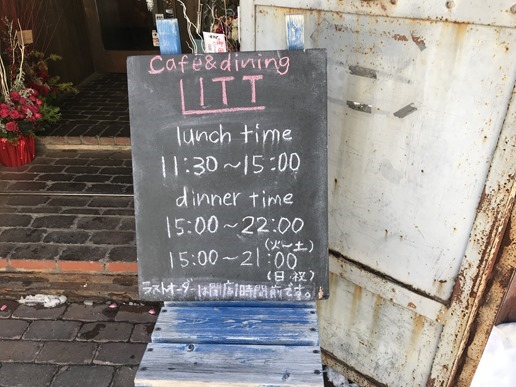 Café&dining
LITT
lunch time
11:30～15:00
dinner time
15:00～22:00
(火～土)
15:00～21:00
(日・祝)
ラストオーダーは閉店1時間前です。